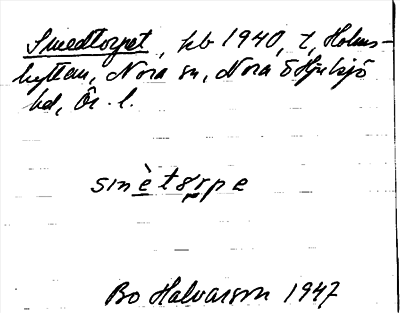 Smedtorpet, kb 1940, t, Holms-
hyttan, Nora sn, Nora o Hjulsjö
hd, Ör. l.
smètsrpe
Bo Halvarson 1947